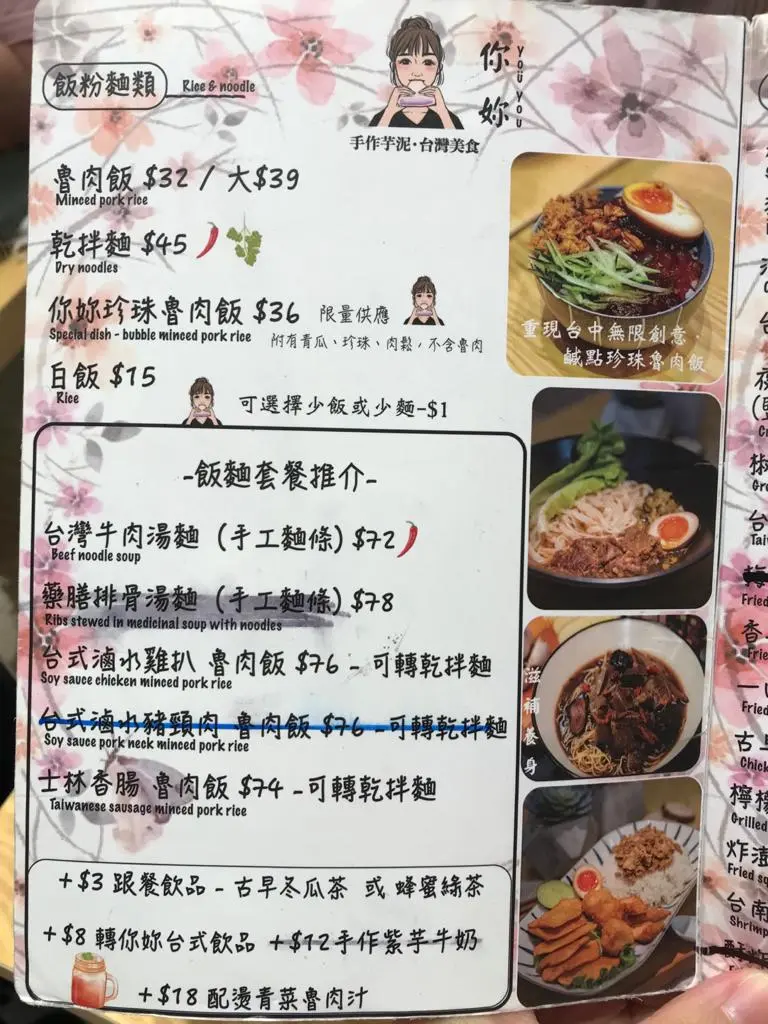 飯粉麵類 Rice & noodle
你妳 YOU YOU
手作芋泥·台灣美食
魯肉飯 $32 / 大$39
Minced pork rice
乾拌麵 $45
Dry noodles
你妳珍珠魯肉飯 $36 限量供應
Special dish - bubble minced pork rice 附有青瓜、珍珠、肉鬆，不含魯肉
白飯 $15
Rice
可選擇少飯或少麵-$1
重現台中無限創意·
鹹點珍珠魯肉飯
-飯麵套餐推介-
台灣牛肉湯麵 (手工麵條) $72
Beef noodle soup
藥膳排骨湯麵 (手工麵條) $78
Ribs stewed in medicinal soup with noodles
台式滷水雞扒 魯肉飯 $76 - 可轉乾拌麵
Soy sauce chicken minced pork rice
台式滷水豬頸肉 魯肉飯 $76 -可轉乾拌麵
Soy sauce pork neck minced pork rice
士林香腸 魯肉飯 $74 -可轉乾拌麵
Taiwanese sausage minced pork rice
滋補養身
+$3 跟餐飲品 - 古早冬瓜茶 或 蜂蜜綠茶
+$8 轉你妳台式飲品 +$12手作紫芋牛奶
+$18 配燙青菜魯肉汁
台
椒
台
Tai
Fried
香
Frie
一
Fried
古早
Chick
檸檬
Grilled
炸
Fried sq
台南
Shrimp